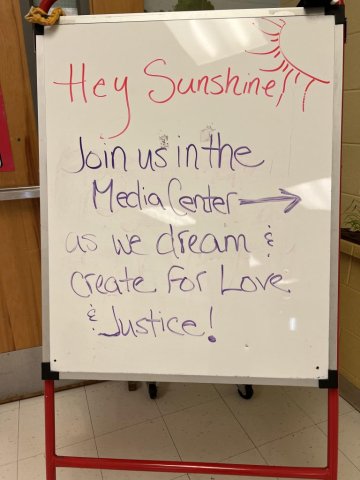 Hey Sunshine!
Join us in the
Media Center →
as we dream &
create For Love
& Justice!